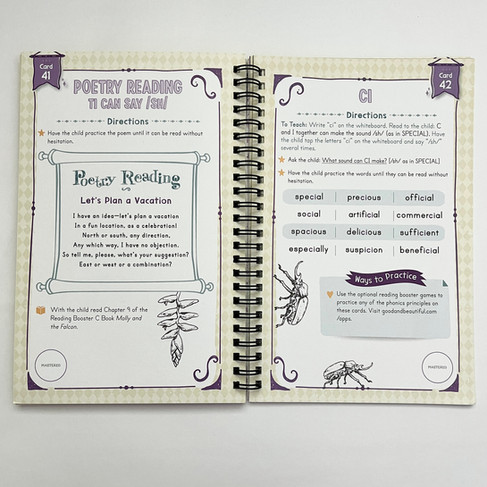 Card
41
POETRY READING
TI CAN SAY /SH/
Directions
Have the child practice the poem until it can be read without
hesitation.
Poetry Reading
Let's Plan a Vacation
I have an idea—let's plan a vacation
In a fun location, as a celebration!
North or south, any direction,
Any which way, I have no objection.
So tell me, please, what's your suggestion?
East or west or a combination?
With the child read Chapter 9 of the
Reading Booster C Book Molly and
the Falcon.
MASTERED
Card
42
CI
Directions
To Teach: Write "ci" on the whiteboard. Read to the child: C
and I together can make the sound /sh/ (as in SPECIAL). Have
the child tap the letters "ci" on the whiteboard and say "/sh/"
several times.
Ask the child: What sound can CI make? [/sh/ as in SPECIAL]
Have the child practice the words until they can be read without
hesitation.
special precious official
social artificial commercial
spacious delicious sufficient
especially suspicion beneficial
Ways to Practice
Use the optional reading booster games to
practice any of the phonics principles on
these cards. Visit goodandbeautiful.com
/apps.
MASTERED